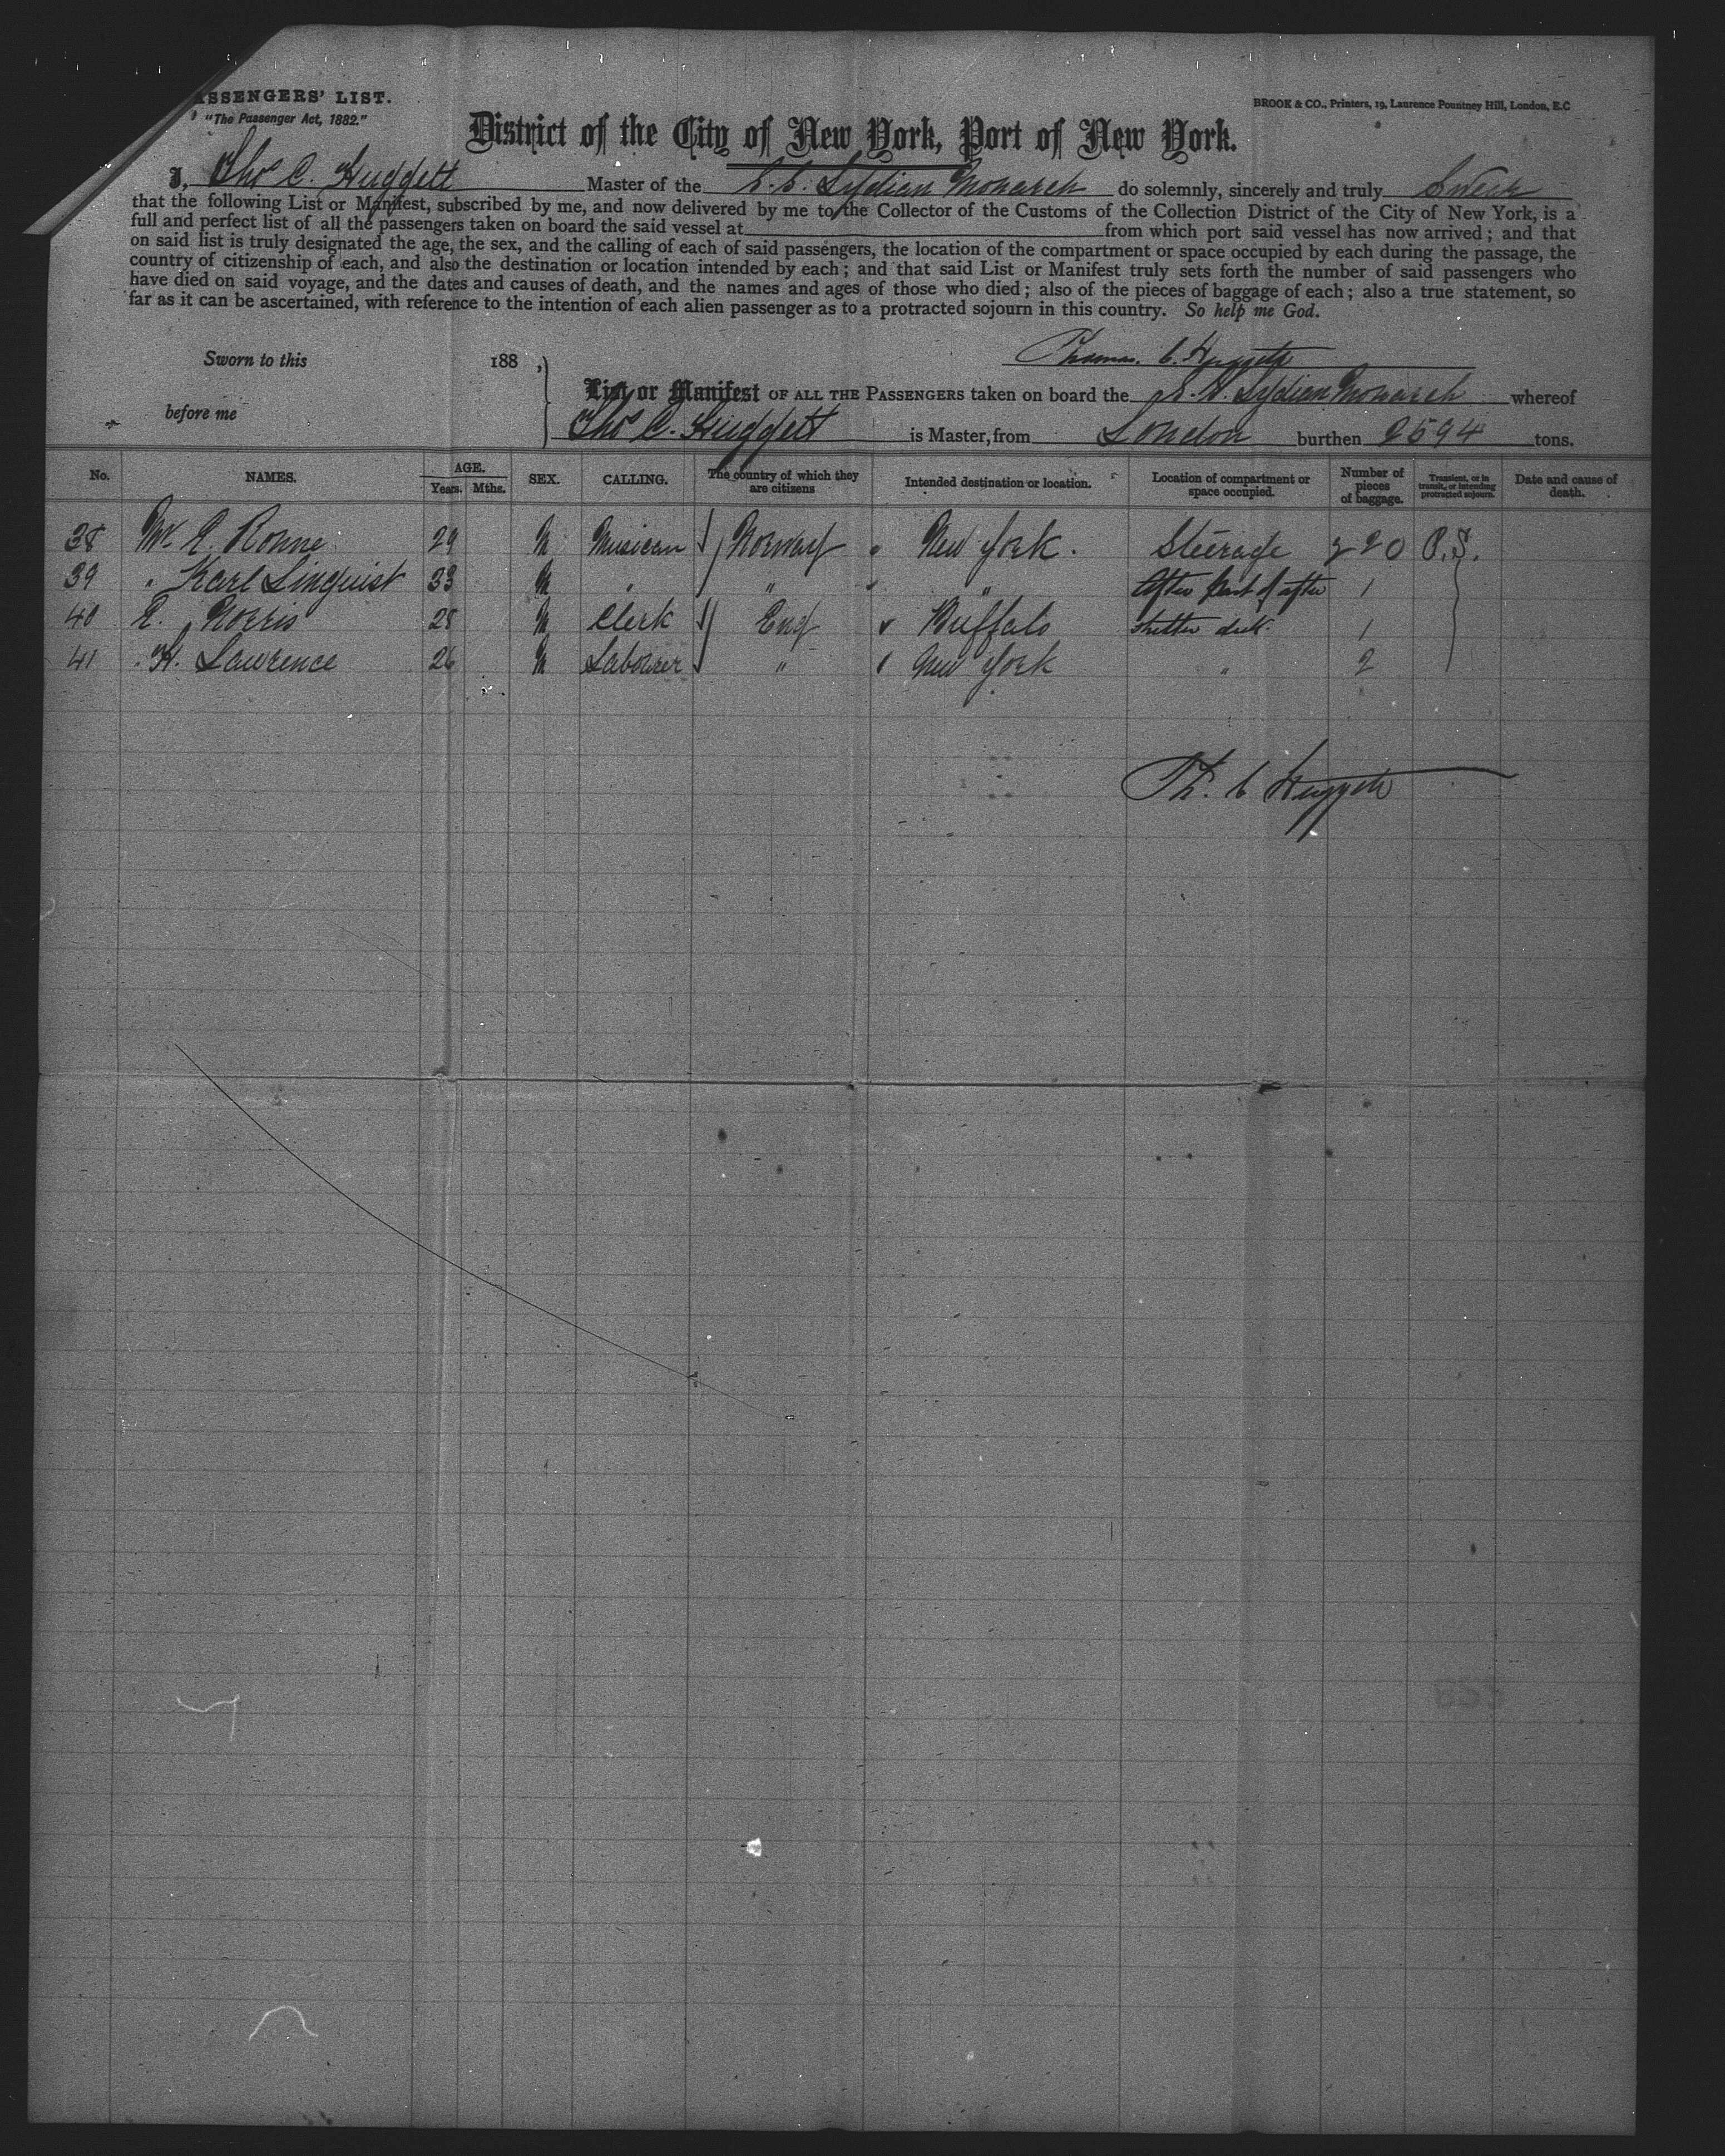 ASSENGERS' LIST.
"The Passenger Act, 1882."
BROOK & CO., Printers, 19, Laurence Pountney Hill, London, E.C
District of the City of New York, Port of New York.
I, Thos C. Huggett Master of the S.S. Lydian Monarch do solemnly, sincerely and truly Swear
that the following List or Manifest, subscribed by me, and now delivered by me to the Collector of the Customs of the Collection District of the City of New York, is a
full and perfect list of all the passengers taken on board the said vessel at from which port said vessel has now arrived; and that
on said list is truly designated the age, the sex, and the calling of each of said passengers, the location of the compartment or space occupied by each during the passage, the
country of citizenship of each, and also the destination or location intended by each; and that said List or Manifest truly sets forth the number of said passengers who
have died on said voyage, and the dates and causes of death, and the names and ages of those who died; also of the pieces of baggage of each; also a true statement, so
far as it can be ascertained, with reference to the intention of each alien passenger as to a protracted sojourn in this country. So help me God.
Thomas. C. Huggett
Sworn to this 188 ,
List or Manifest OF ALL THE PASSENGERS taken on board the S.S. Lydian Monarch whereof
before me
Thos C. Huggett is Master, from London burthen 2594 tons.
No. NAMES. AGE. Years. Mths. SEX. CALLING. The country of which they are citizens Intended destination or location. Location of compartment or space occupied. Number of pieces of baggage. Transient, or in transit, or intending protracted sojourn. Date and cause of death.
38 Mr. R. Ronne 29 M Musican Norway New York. Steerage 2 P.S.
39 " Karl Linquist 33 M " " " After Part of after 1
40 R. Norris 28 M Clerk Eng Buffalo shelter deck. 1
41 " H. Lawrence 26 M Labourer " New York " 2
Th. C Huggett